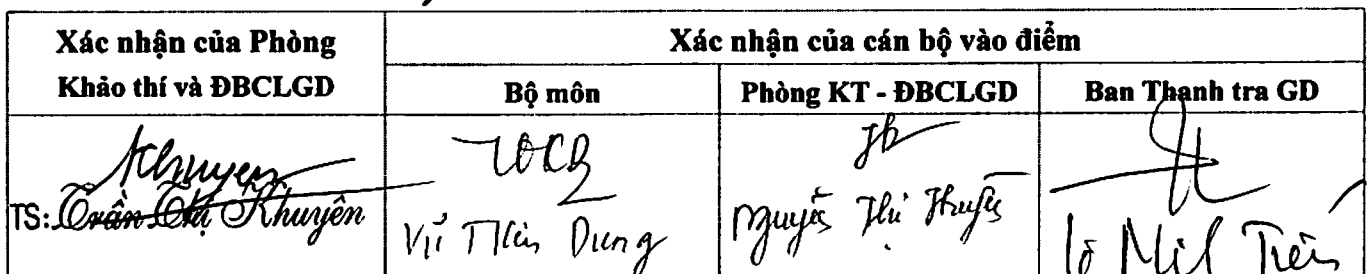 Xác nhận của Phòng
Khảo thí và ĐBCLGD
Xác nhận của cán bộ vào điểm
Bộ môn
Phòng KT - ĐBCLGD
Ban Thanh tra GD
Khuyen
TS: Trần Thị Khuyên
Vũ Dung
Nguyễn Thị